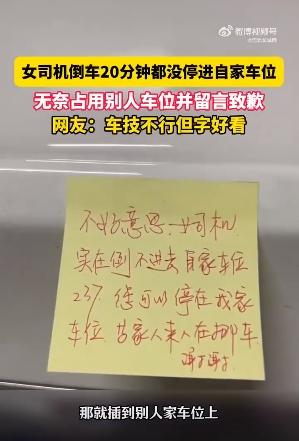 微博视频号
女司机倒车20分钟都没停进自家车位
无奈占用别人车位并留言致歉
网友：车技不行但字好看
不好意思.女司机
实在倒不进去自家车位
237.您可以停在我家
车位.等家人来人在挪车.
那就插到别人家车位上